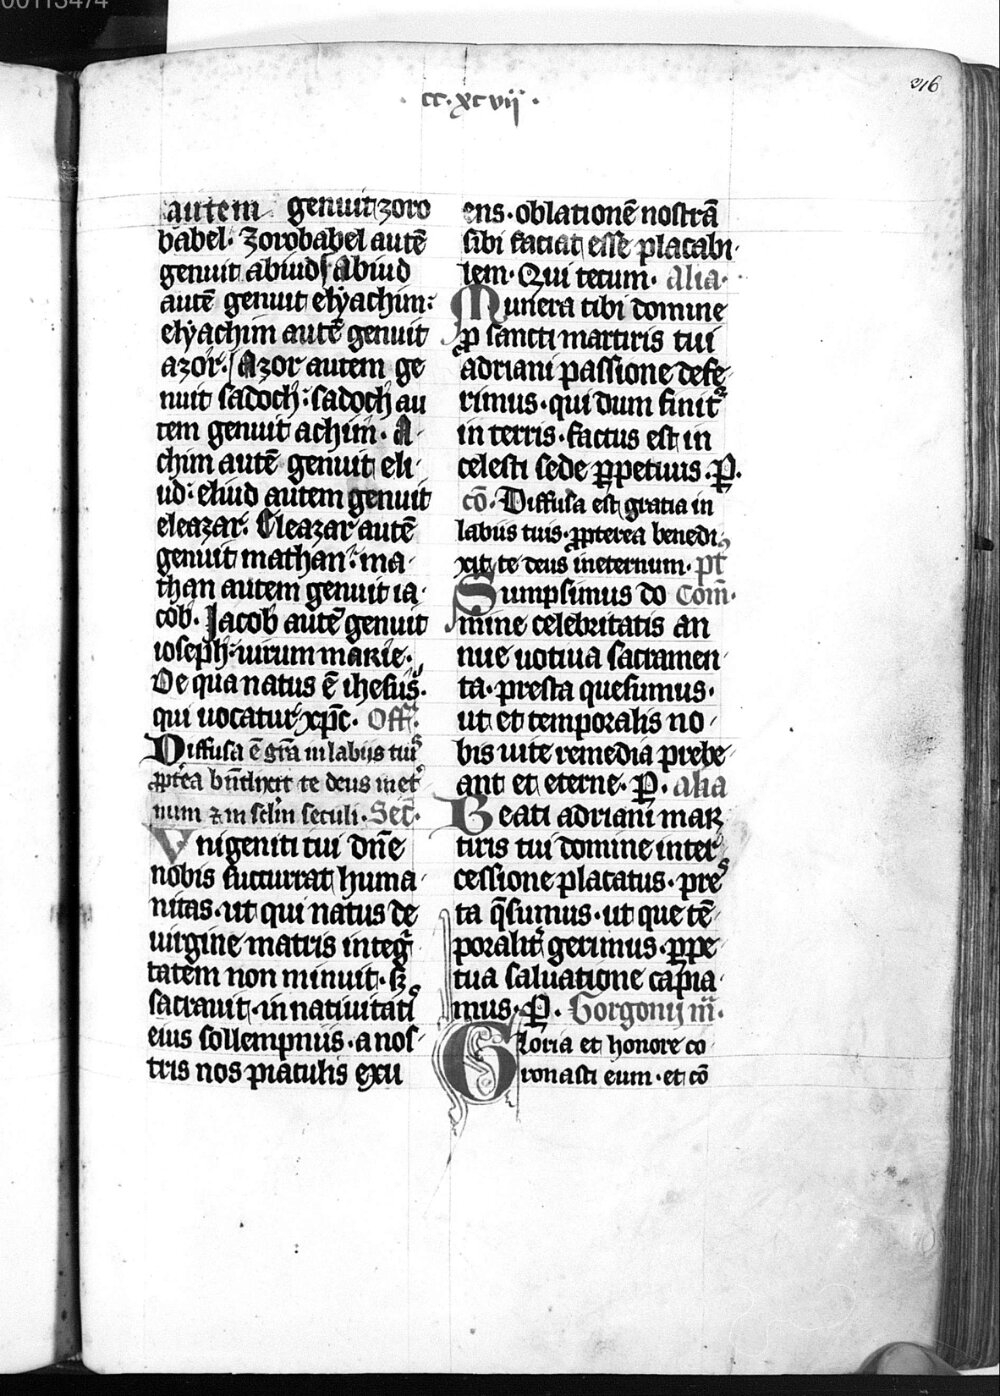 00113474
316
cc·xcvij·
autem genuit zoro
babel· Zorobabel autē
genuit abiud· Abiud
autē genuit elyachim:
elyachim autē genuit
azor· Azor autem ge
nuit sadoch: sadoch au
tem genuit achim· A·
chim autē genuit eli·
ud: eliud autem genuit
eleazar· Eleazar autē
genuit mathan: ma·
than autem genuit ia·
cob· Jacob autē genuit
ioseph· uirum marie·
De qua natus ē ihesus·
qui uocatur xp̄c· Off̄·
Diffusa ē grā in labijs tuis
ꝓpt̄ea bn̄dixit te deus in et̄
num ⁊ in sclm̄ seculi· Sec̄·
Vnigeniti tui dn̄e
nobis succurrat huma·
nitas· ut qui natus de
uirgine matris integͥ
tatem non minuit· sꝫ
sacrauit· in natiuitatis
eius sollempniis· a nos·
tris nos piaculis exu
ens· oblationē nostrā
sibi faciat esse placabi·
lem· Qui tecum· Alia·
Munera tibi domine
ꝓ sancti martiris tui
adriani passione defe·
rimus· qui dum finitͬ
in terris· factus est in
celesti sede ꝑpetuus· P·
cō· Diffusa est gratia in
labiis tuis· ꝓpterea benedi
xit te deus in eternum· pt̄
Sumpsimus do Com̄·
mine celebritatis an
nue uotiua sacramen·
ta· presta quesumus·
ut et temporalis no·
bis uite remedia prebe·
ant et eterne· P· alia
Beati adriani mar
tiris tui domine inter
cessione placatus· pres
ta q̄sumus· ut que tē·
poralit̄ gerimus· ꝑpe·
tua saluatione capia·
mus· P· Gorgonij m̄·
Gloria et honore co·
ronasti eum· et cō